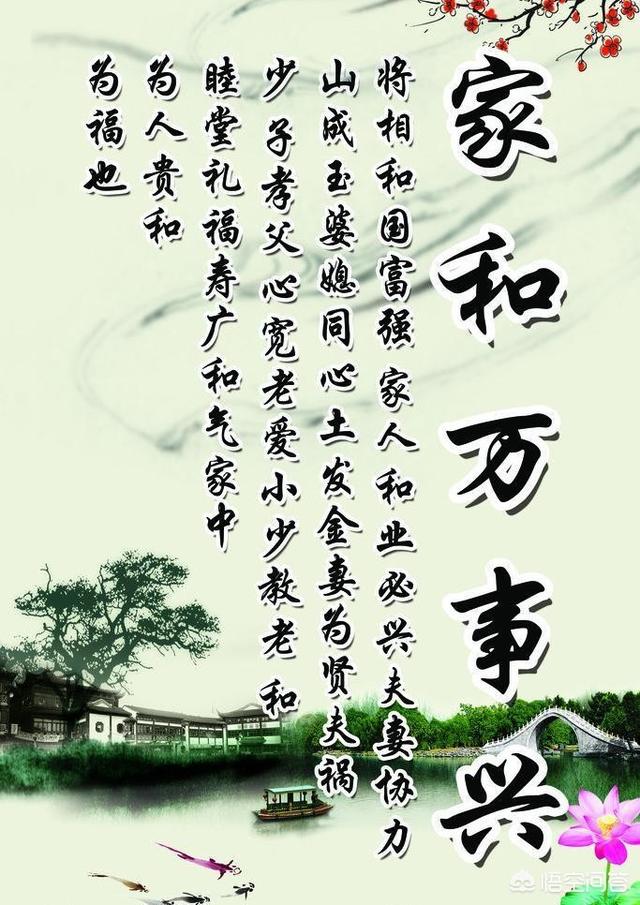 家和万事兴
将相和国富强家人和业必兴夫妻协力
山成玉婆媳同心土发金妻为贤夫祸
少子孝父心宽老爱小少教老和
睦堂礼福寿广和气家中
为人贵和
为福也
悟空问答